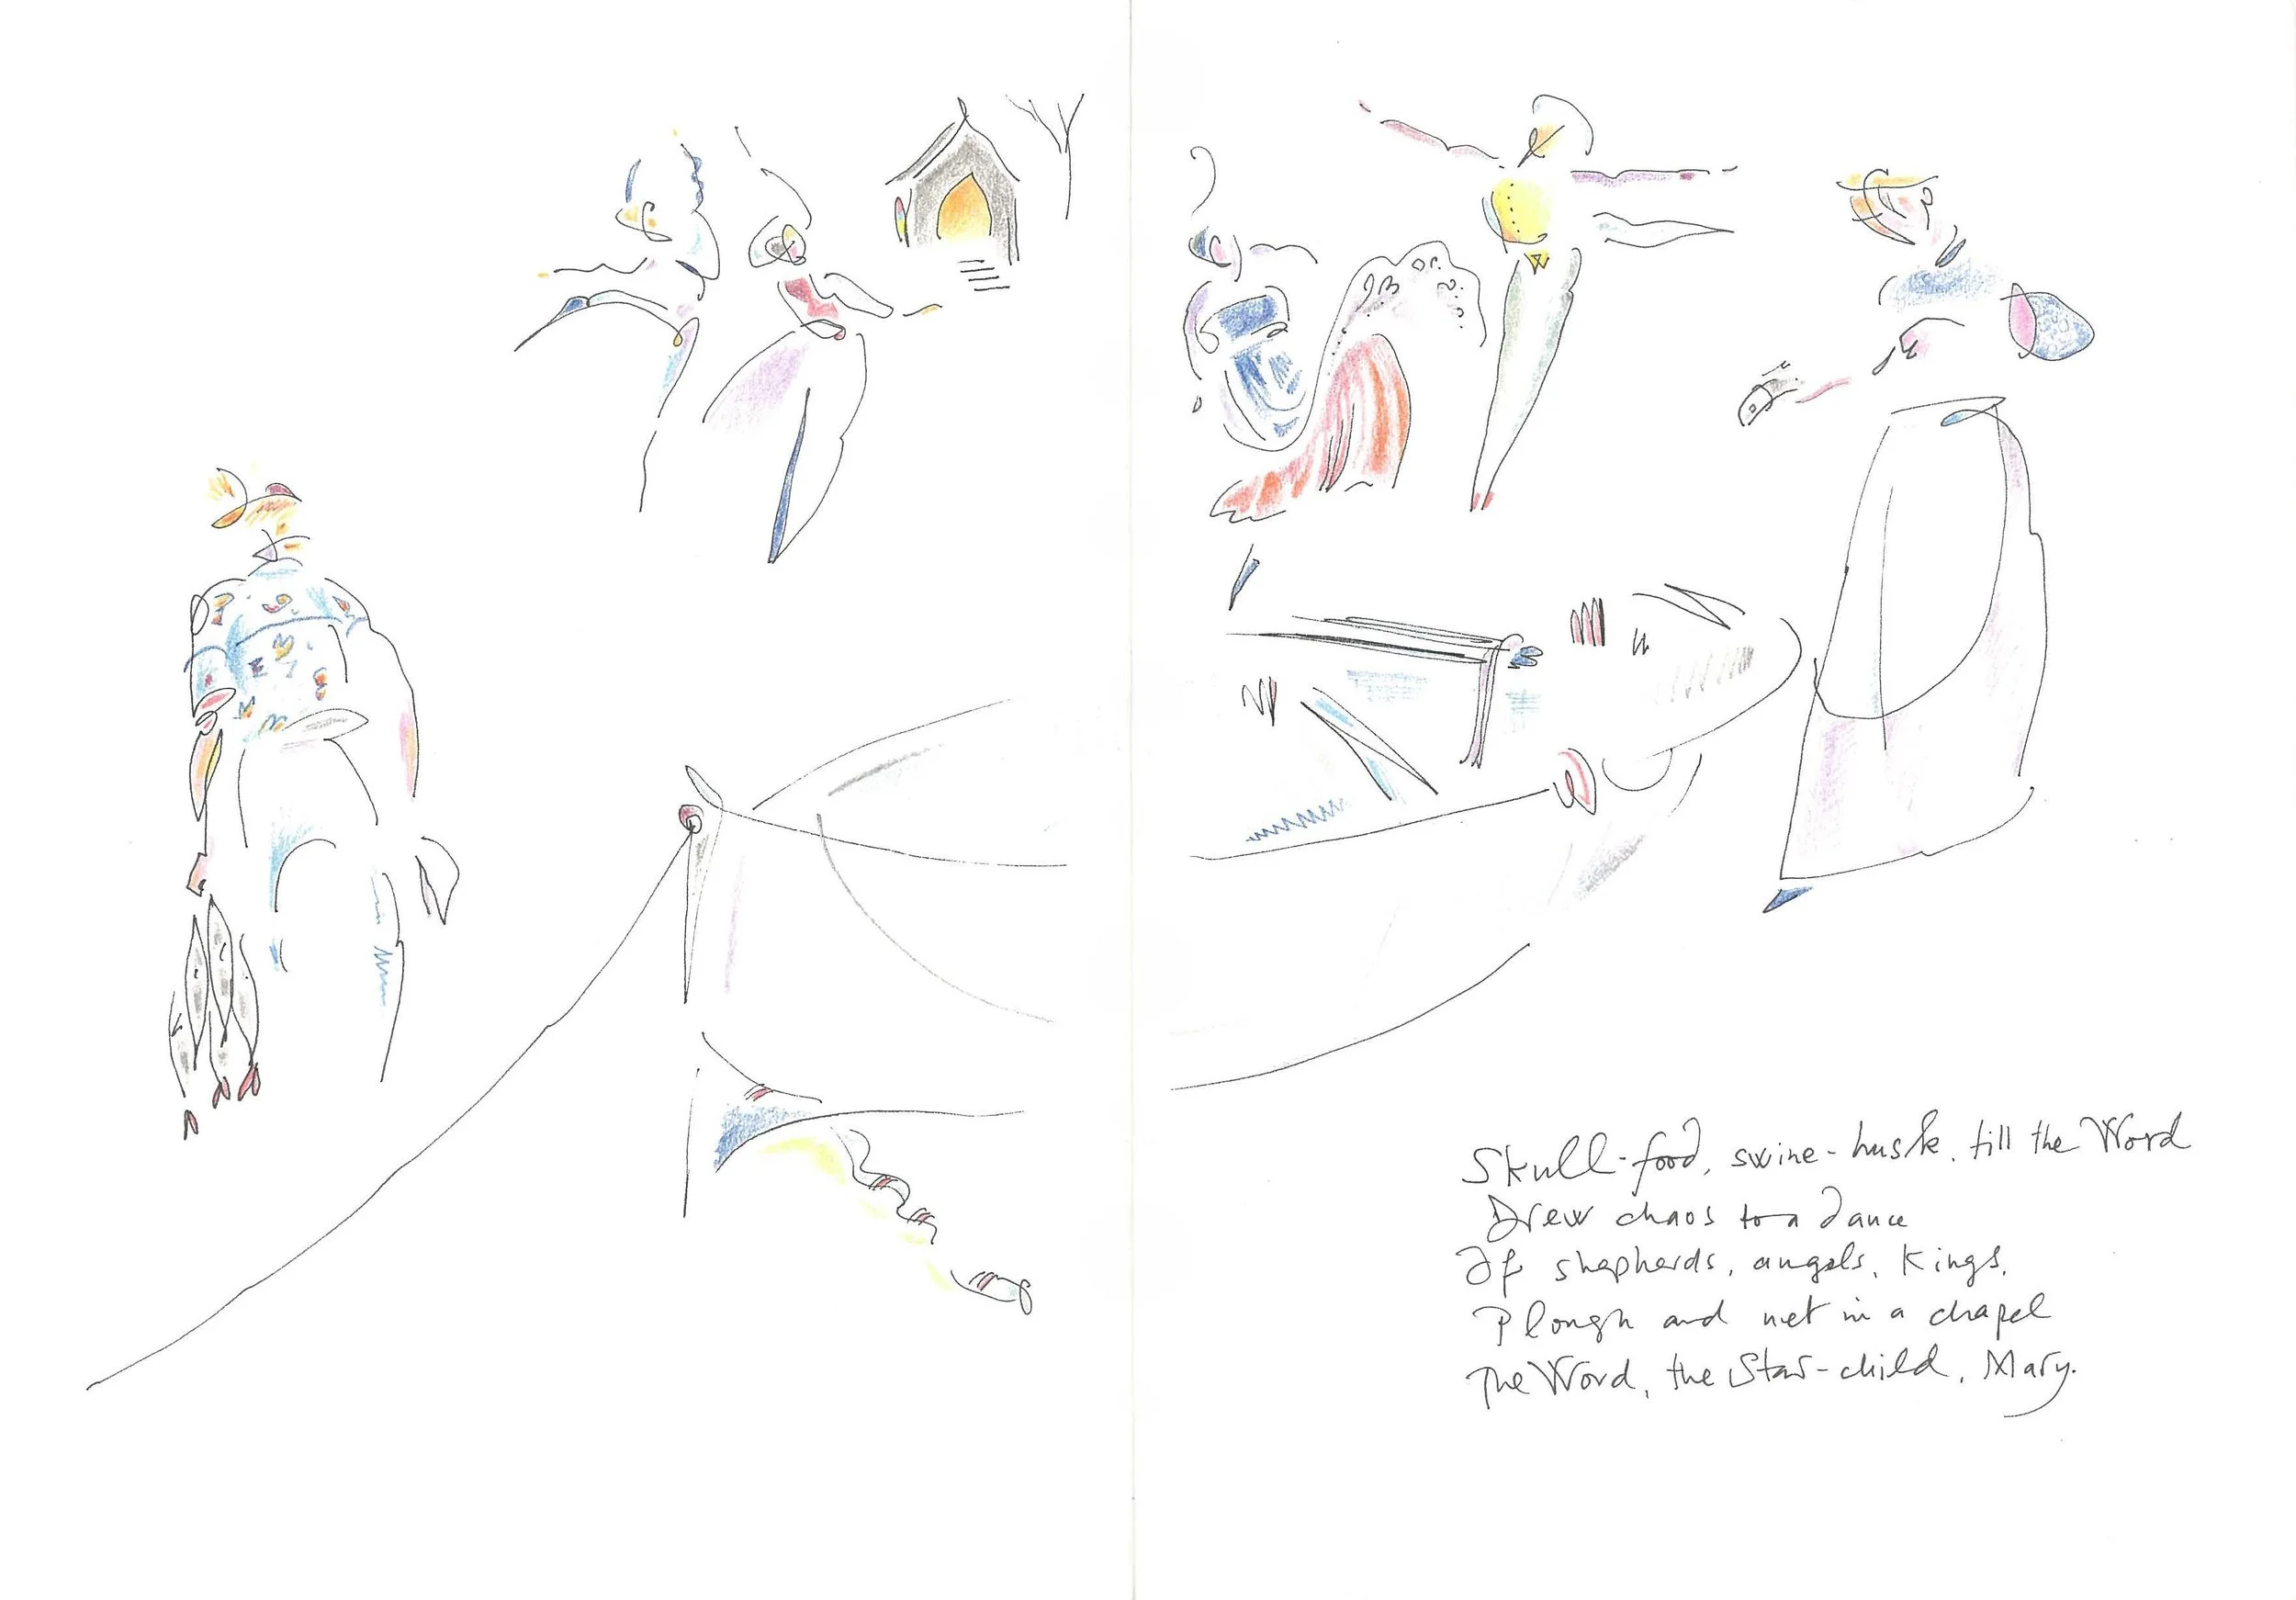 Skull-food, swine-husk, till the Word
Drew chaos to a dance
Of shepherds, angels, Kings,
Plough and net in a chapel
The Word, the Star-child, Mary.